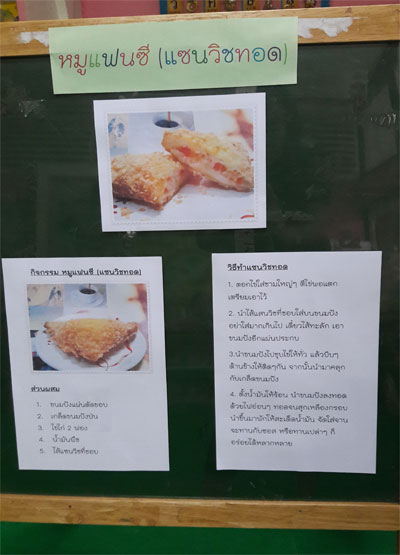 หมูแฟนซี (แซนวิชทอด)
กิจกรรม หมูแฟนซี (แซนวิชทอด)
ส่วนผสม
1. ขนมปังแผ่นตัดขอบ
2. เกล็ดขนมปังป่น
3. ไข่ไก่ 2 ฟอง
4. น้ำมันพืช
5. ไส้แซนวิชที่ชอบ
วิธีทำแซนวิชทอด
1. ตอกไข่ใส่ชามใหญ่ๆ ตีไข่พอแตก
เตรียมเอาไว้
2. นำไส้แซนวิชที่ชอบใส่บนขนมปัง
อย่าใส่มากเกินไป เดี๋ยวไส้ทะลัก เอา
ขนมปังอีกแผ่นประกบ
3.นำขนมปังไปชุบไข่ให้ทั่ว แล้วบีบๆ
ด้านข้างให้ติดๆกัน จากนั้นนำมาคลุก
กับเกล็ดขนมปัง
4. ตั้งน้ำมันให้ร้อน นำขนมปังลงทอด
ด้วยไฟอ่อนๆ ทอดจนสุกเหลืองกรอบ
นำขึ้นมาพักให้สะเด็ดน้ำมัน จัดใส่จาน
จะทานกับซอส หรือทานเปล่าๆ ก็
อร่อยได้หลากหลาย